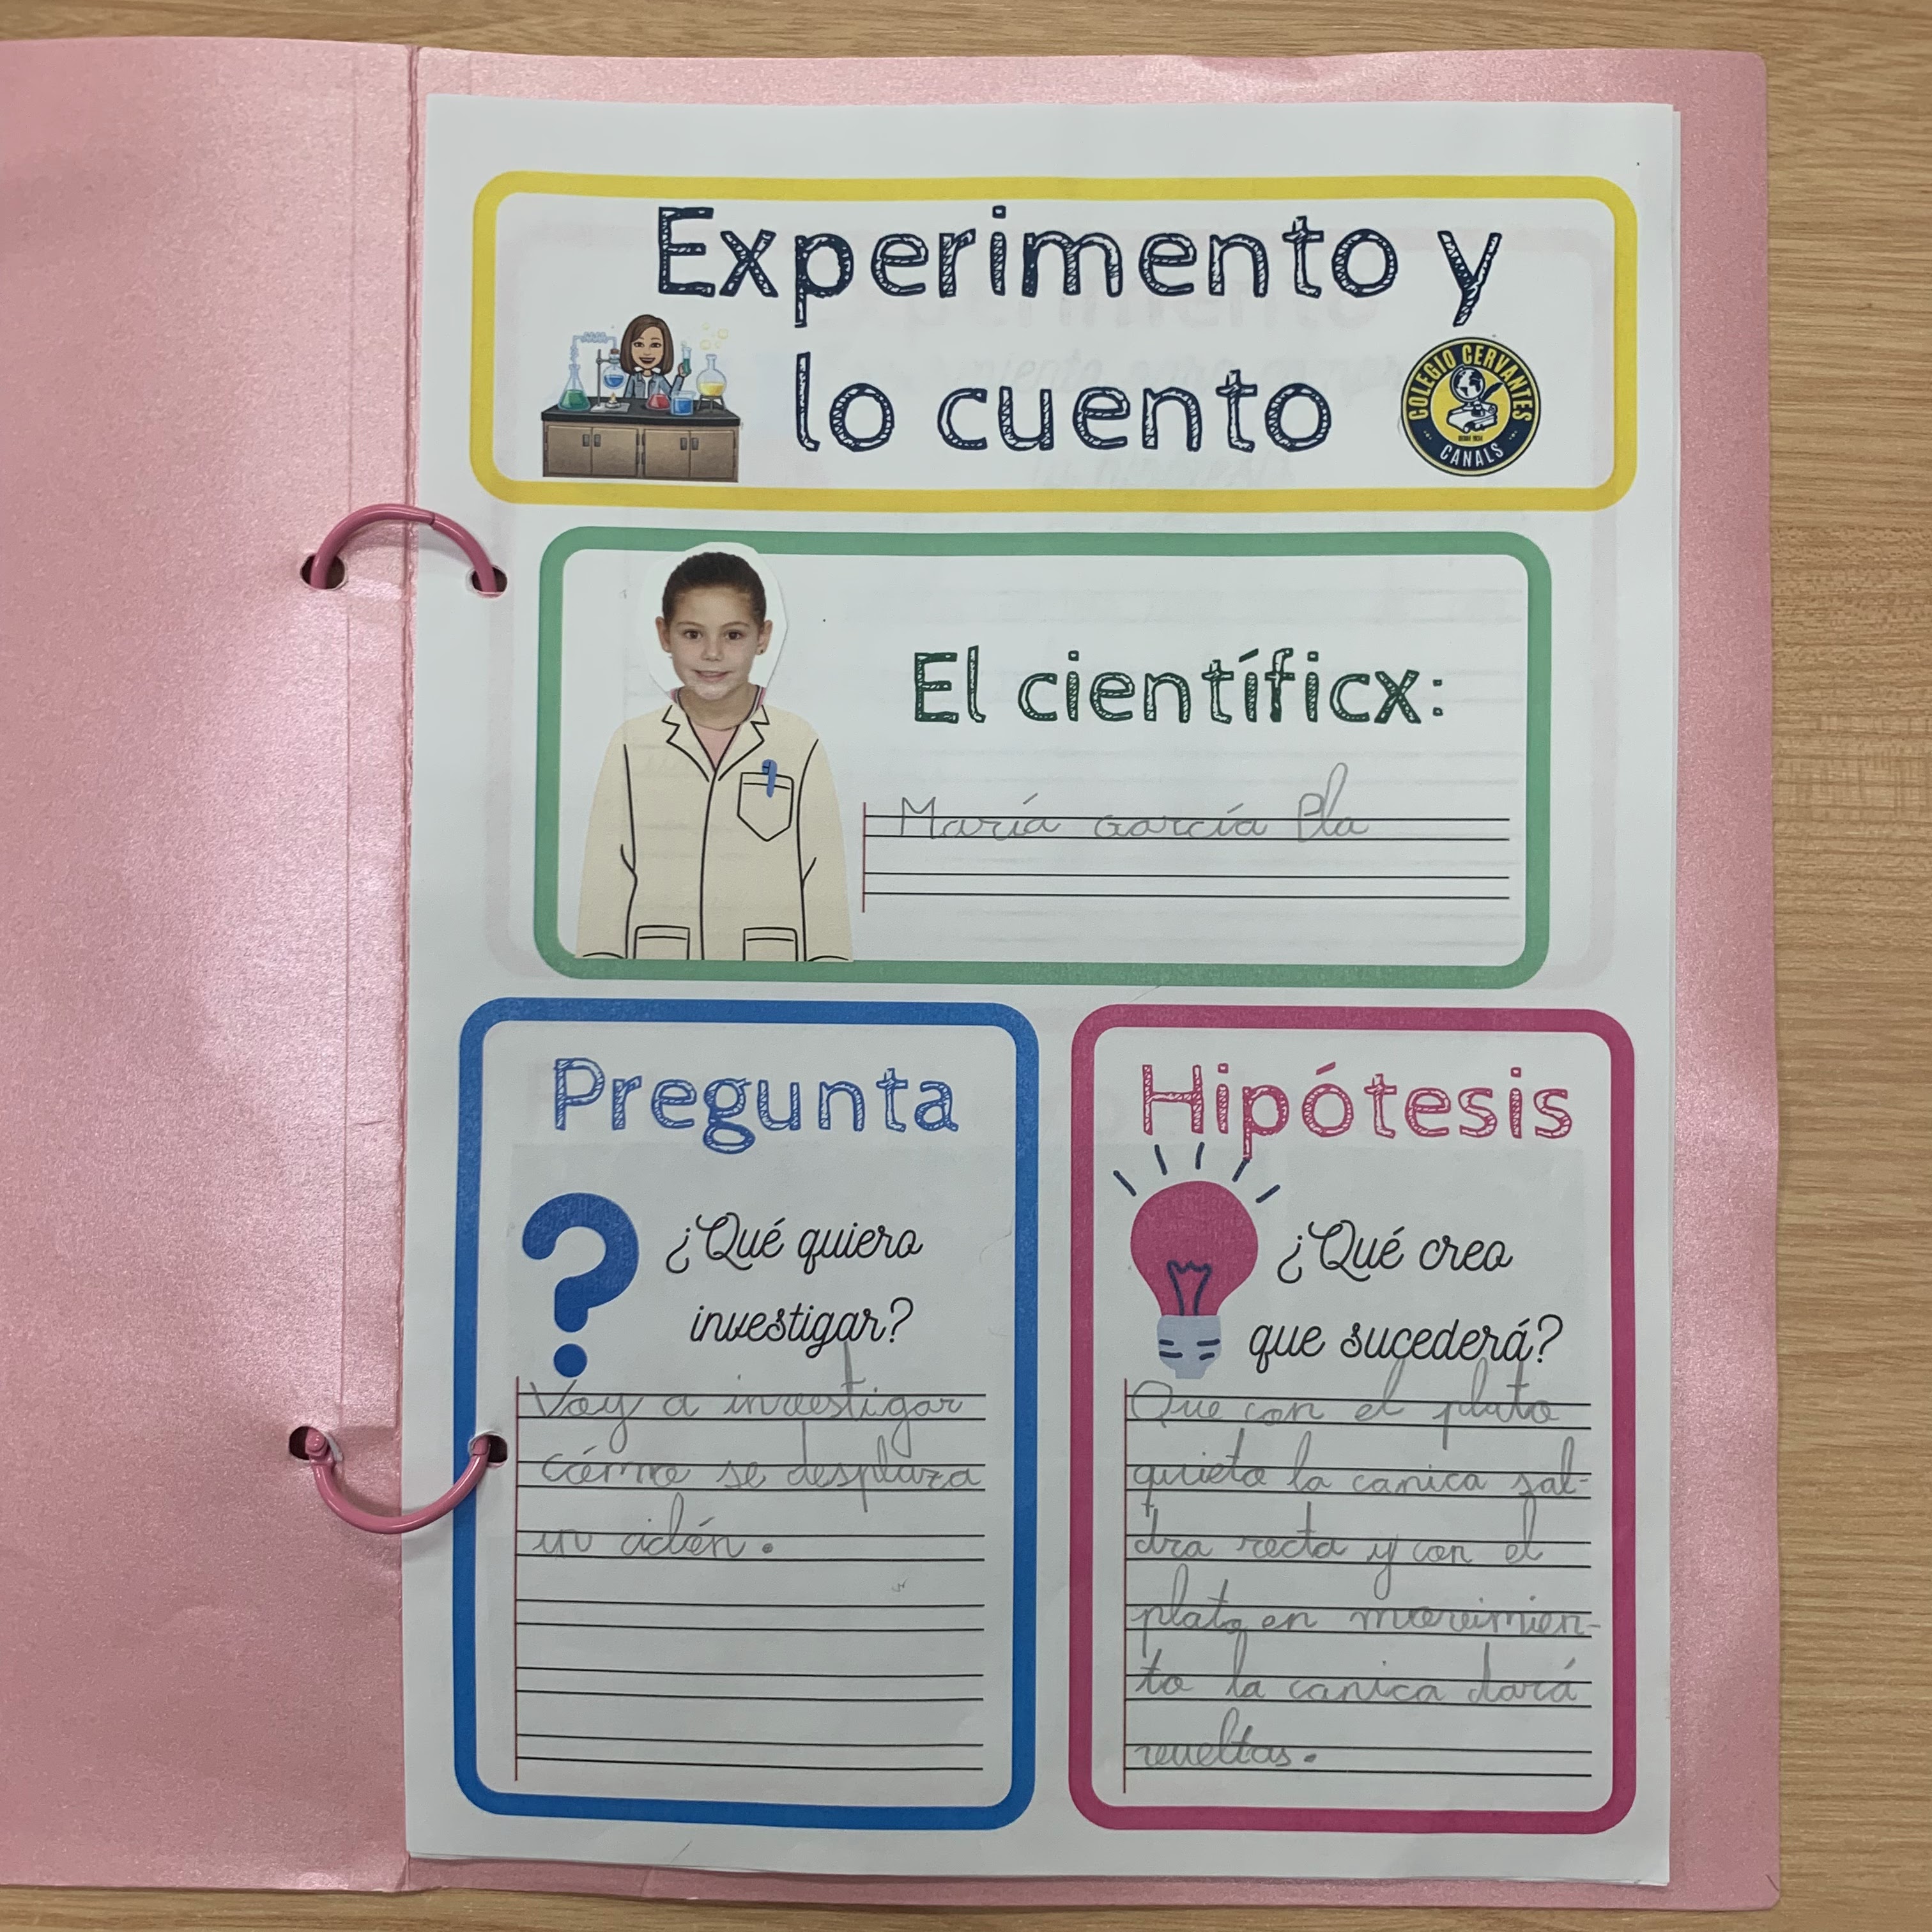 Experimento y
lo cuento
COLEGIO CERVANTES
DESDE 1934
CANALS
El científicx:
María García Pla
Pregunta
¿Qué quiero
investigar?
Voy a investigar
cómo se desplaza
un ciclón.
Hipótesis
¿Qué creo
que sucederá?
Que con el plato
quieto la canica sal-
dra recta y con el
plato en movimien-
to la canica dará
vueltas.